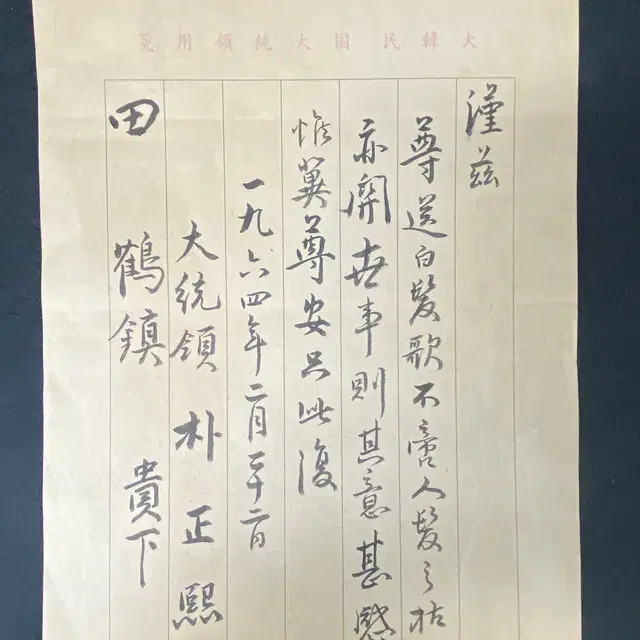 大韓民国大統領用箋
謹茲
尊送白髮歌不啻人髮之枯
亦關世事則其意甚
惟冀尊安只此復
一九六四年二月二十二日
大統領 朴正熙
田鶴鎮 貴下